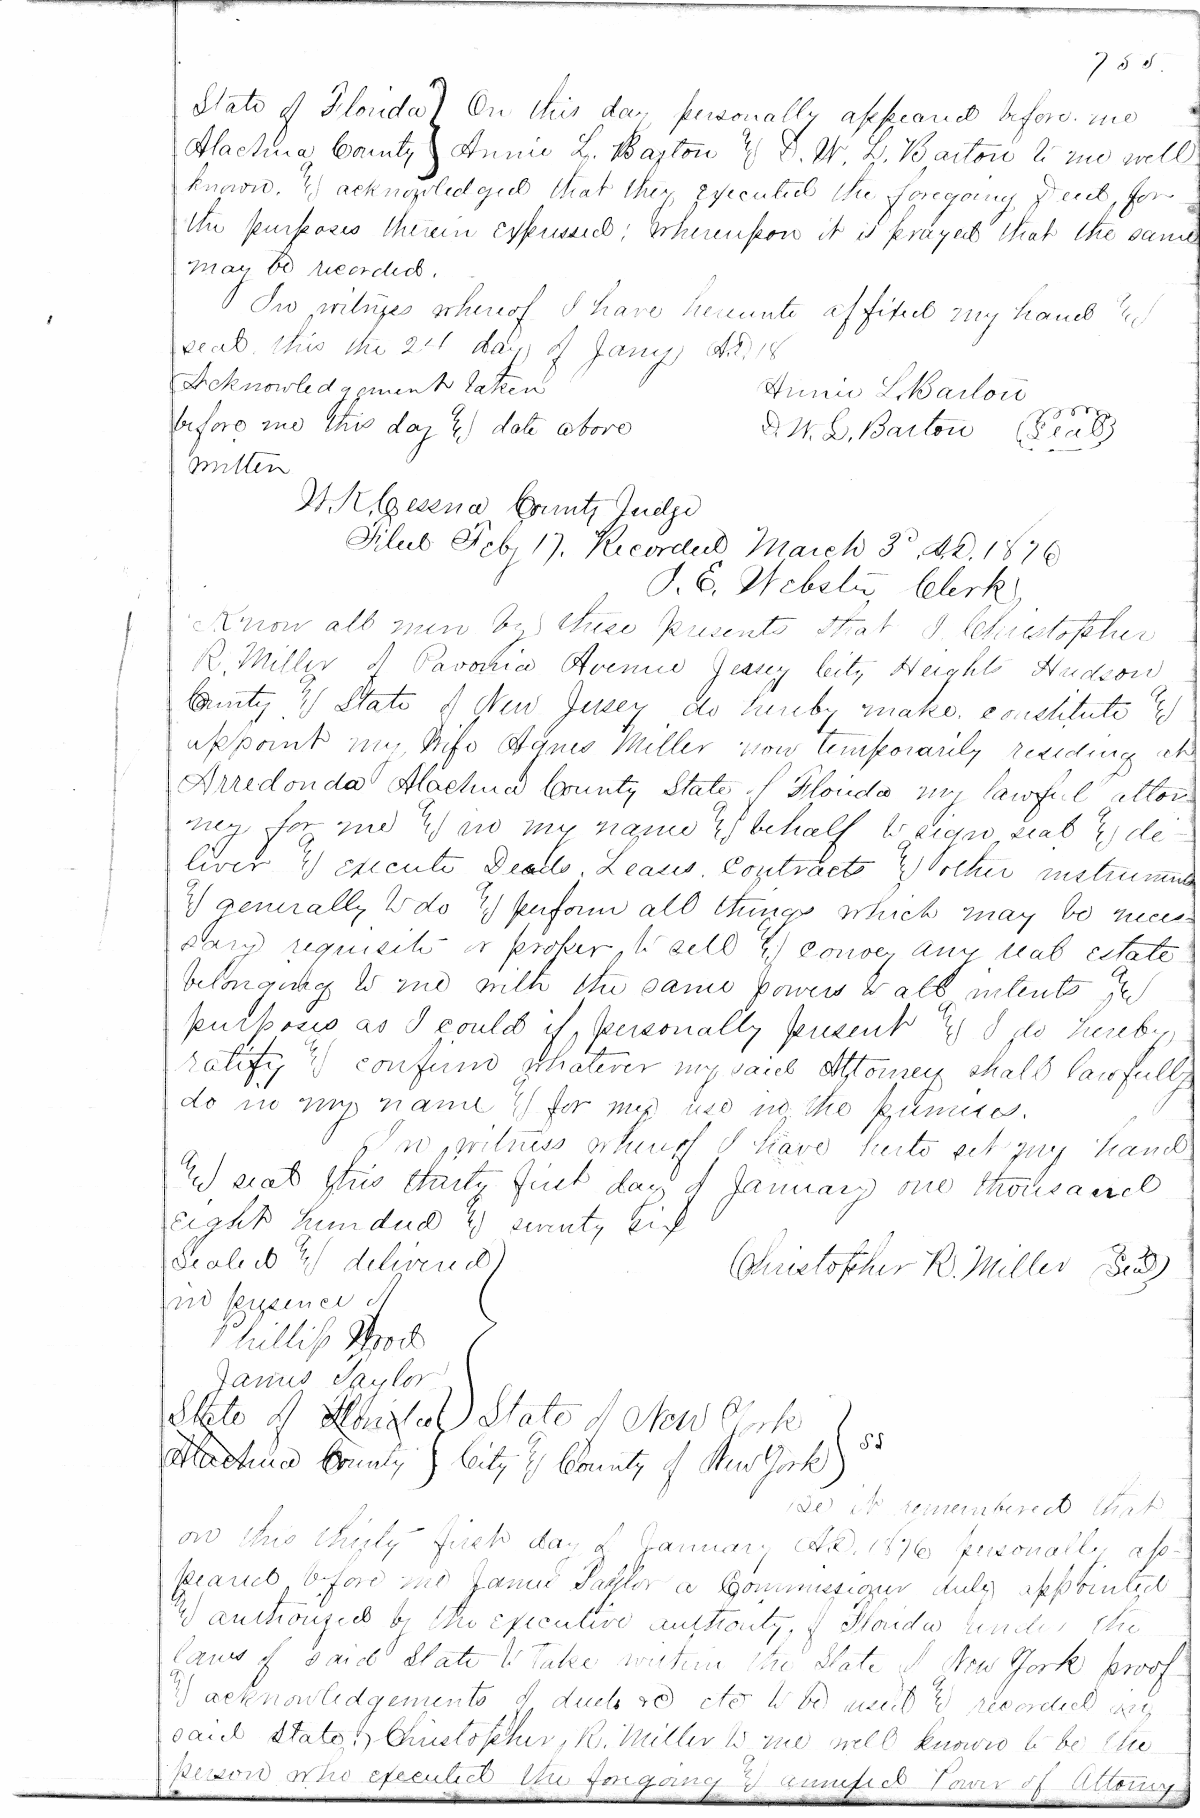 755.
State of Florida } On this day personally appeared before me
Alachua County } Annie L. Barton & D. W. L. Barton to me well
known. & acknowledged that they executed the foregoing Deed, for
the purposes therein expressed; whereupon it is prayed that the same
may be recorded.
In witness whereof I have hereunto affixed my hand &
seal. this the 24 day of Jany A.D. 18
Acknowledgement taken Annie L. Barton
before me this day & date above D. W. L. Barton (Seal)
written
W. K. Cessna County Judge
Filed Feby 17. Recorded March 3d A.D. 1876
J. E. Webster Clerk
Know all men by these presents that I Christopher
R. Miller of Pavonia Avenue Jersey City Heights Hudson
County & State of New Jersey do hereby make. constitute &
appoint my Wife Agnes Miller now temporarily residing at
Arredonda Alachua County State of Florida my lawful attor-
ney for me & in my name & behalf to sign seal & de-
liver & execute Deeds. Leases. Contracts & other instruments
& generally to do & perform all things which may be neces-
sary requisite or proper to sell & convey any real estate
belonging to me with the same powers to all intents &
purposes as I could if personally present & I do hereby
ratify & confirm whatever my said Attorney shall lawfully
do in my name & for my use in the premises.
In witness whereof I have herto set my hand
& seal this thirty first day of January one thousand
eight hundred & seventy six
Sealed & delivered } Christopher R. Miller (Seal)
in presence of
Phillip Wood
James Taylor
State of Florida } State of New York }
Alachua County } City & County of New York } ss
Be it remembered that
on this thirty first day of January A.D. 1876 personally ap-
peared before me James Taylor a Commissioner duly appointed
& authorized by the executive authority of Florida under the
laws of said State to take within the State of New York proof
& acknowledgements of deeds &c etc to be used & recorded in
said State, Christopher R. Miller to me well known to be the
person who executed the foregoing & annexed Power of Attorney